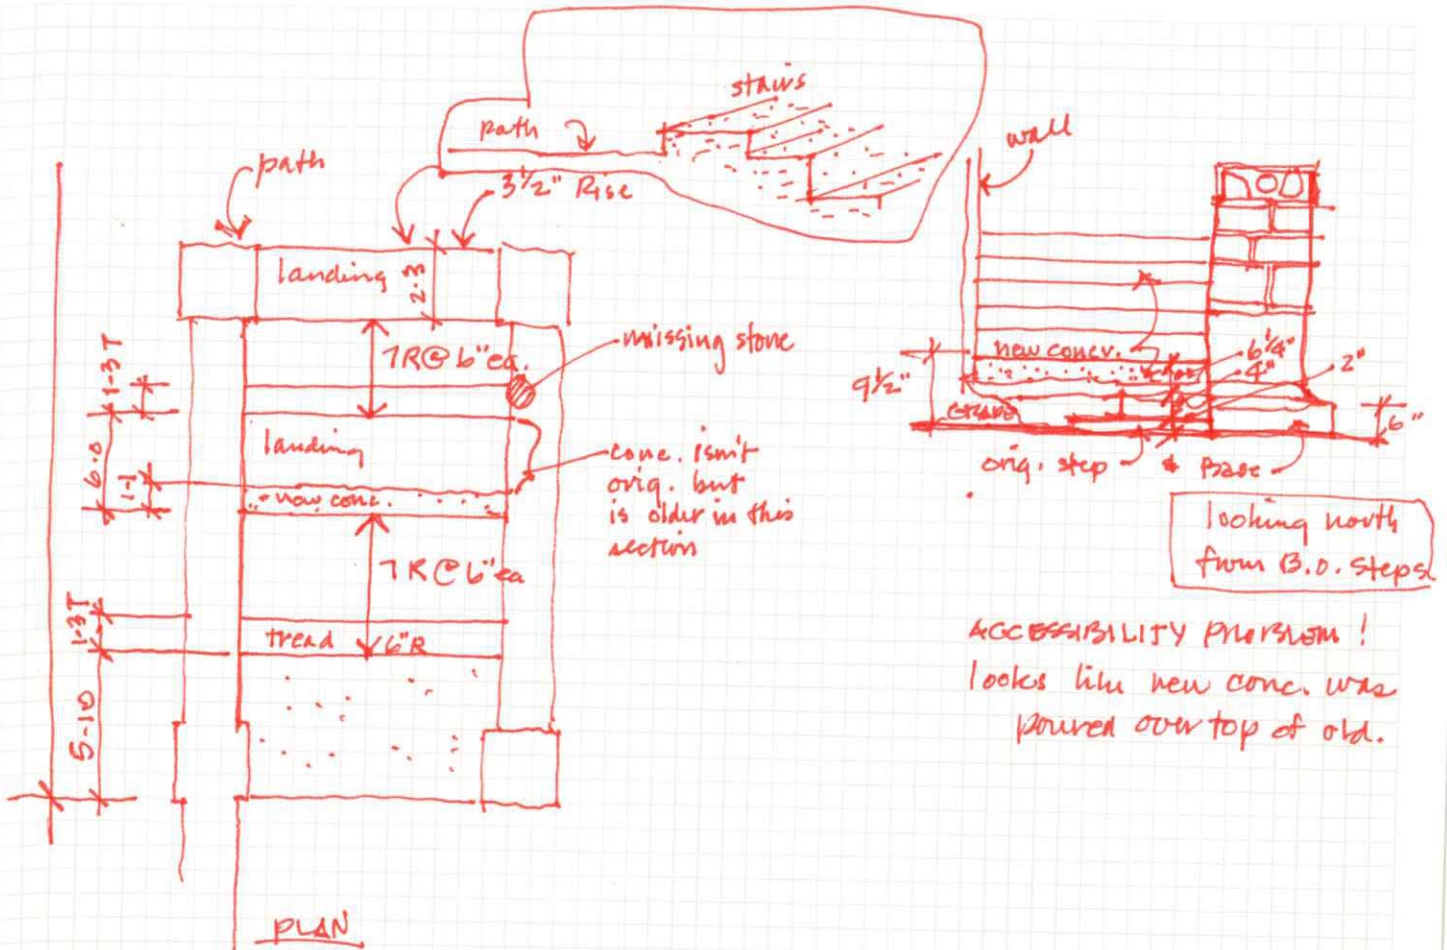 stairs
path
3 1/2" Rise
path
wall
landing
2-3
7R@6"ea.
1-3T
missing stone
6.0
landing
1-1
new conc.
conc. isn't
orig. but
is older in this
section
7R@6"ea
1-3T
tread
6"R
5-10
PLAN
new concr.
6 1/4"
4"
2"
9 1/2"
GRADE
6"
orig. step & Base
looking north
from B.O. steps.
ACCESSIBILITY PROBLEM!
looks like new conc. was
poured over top of old.